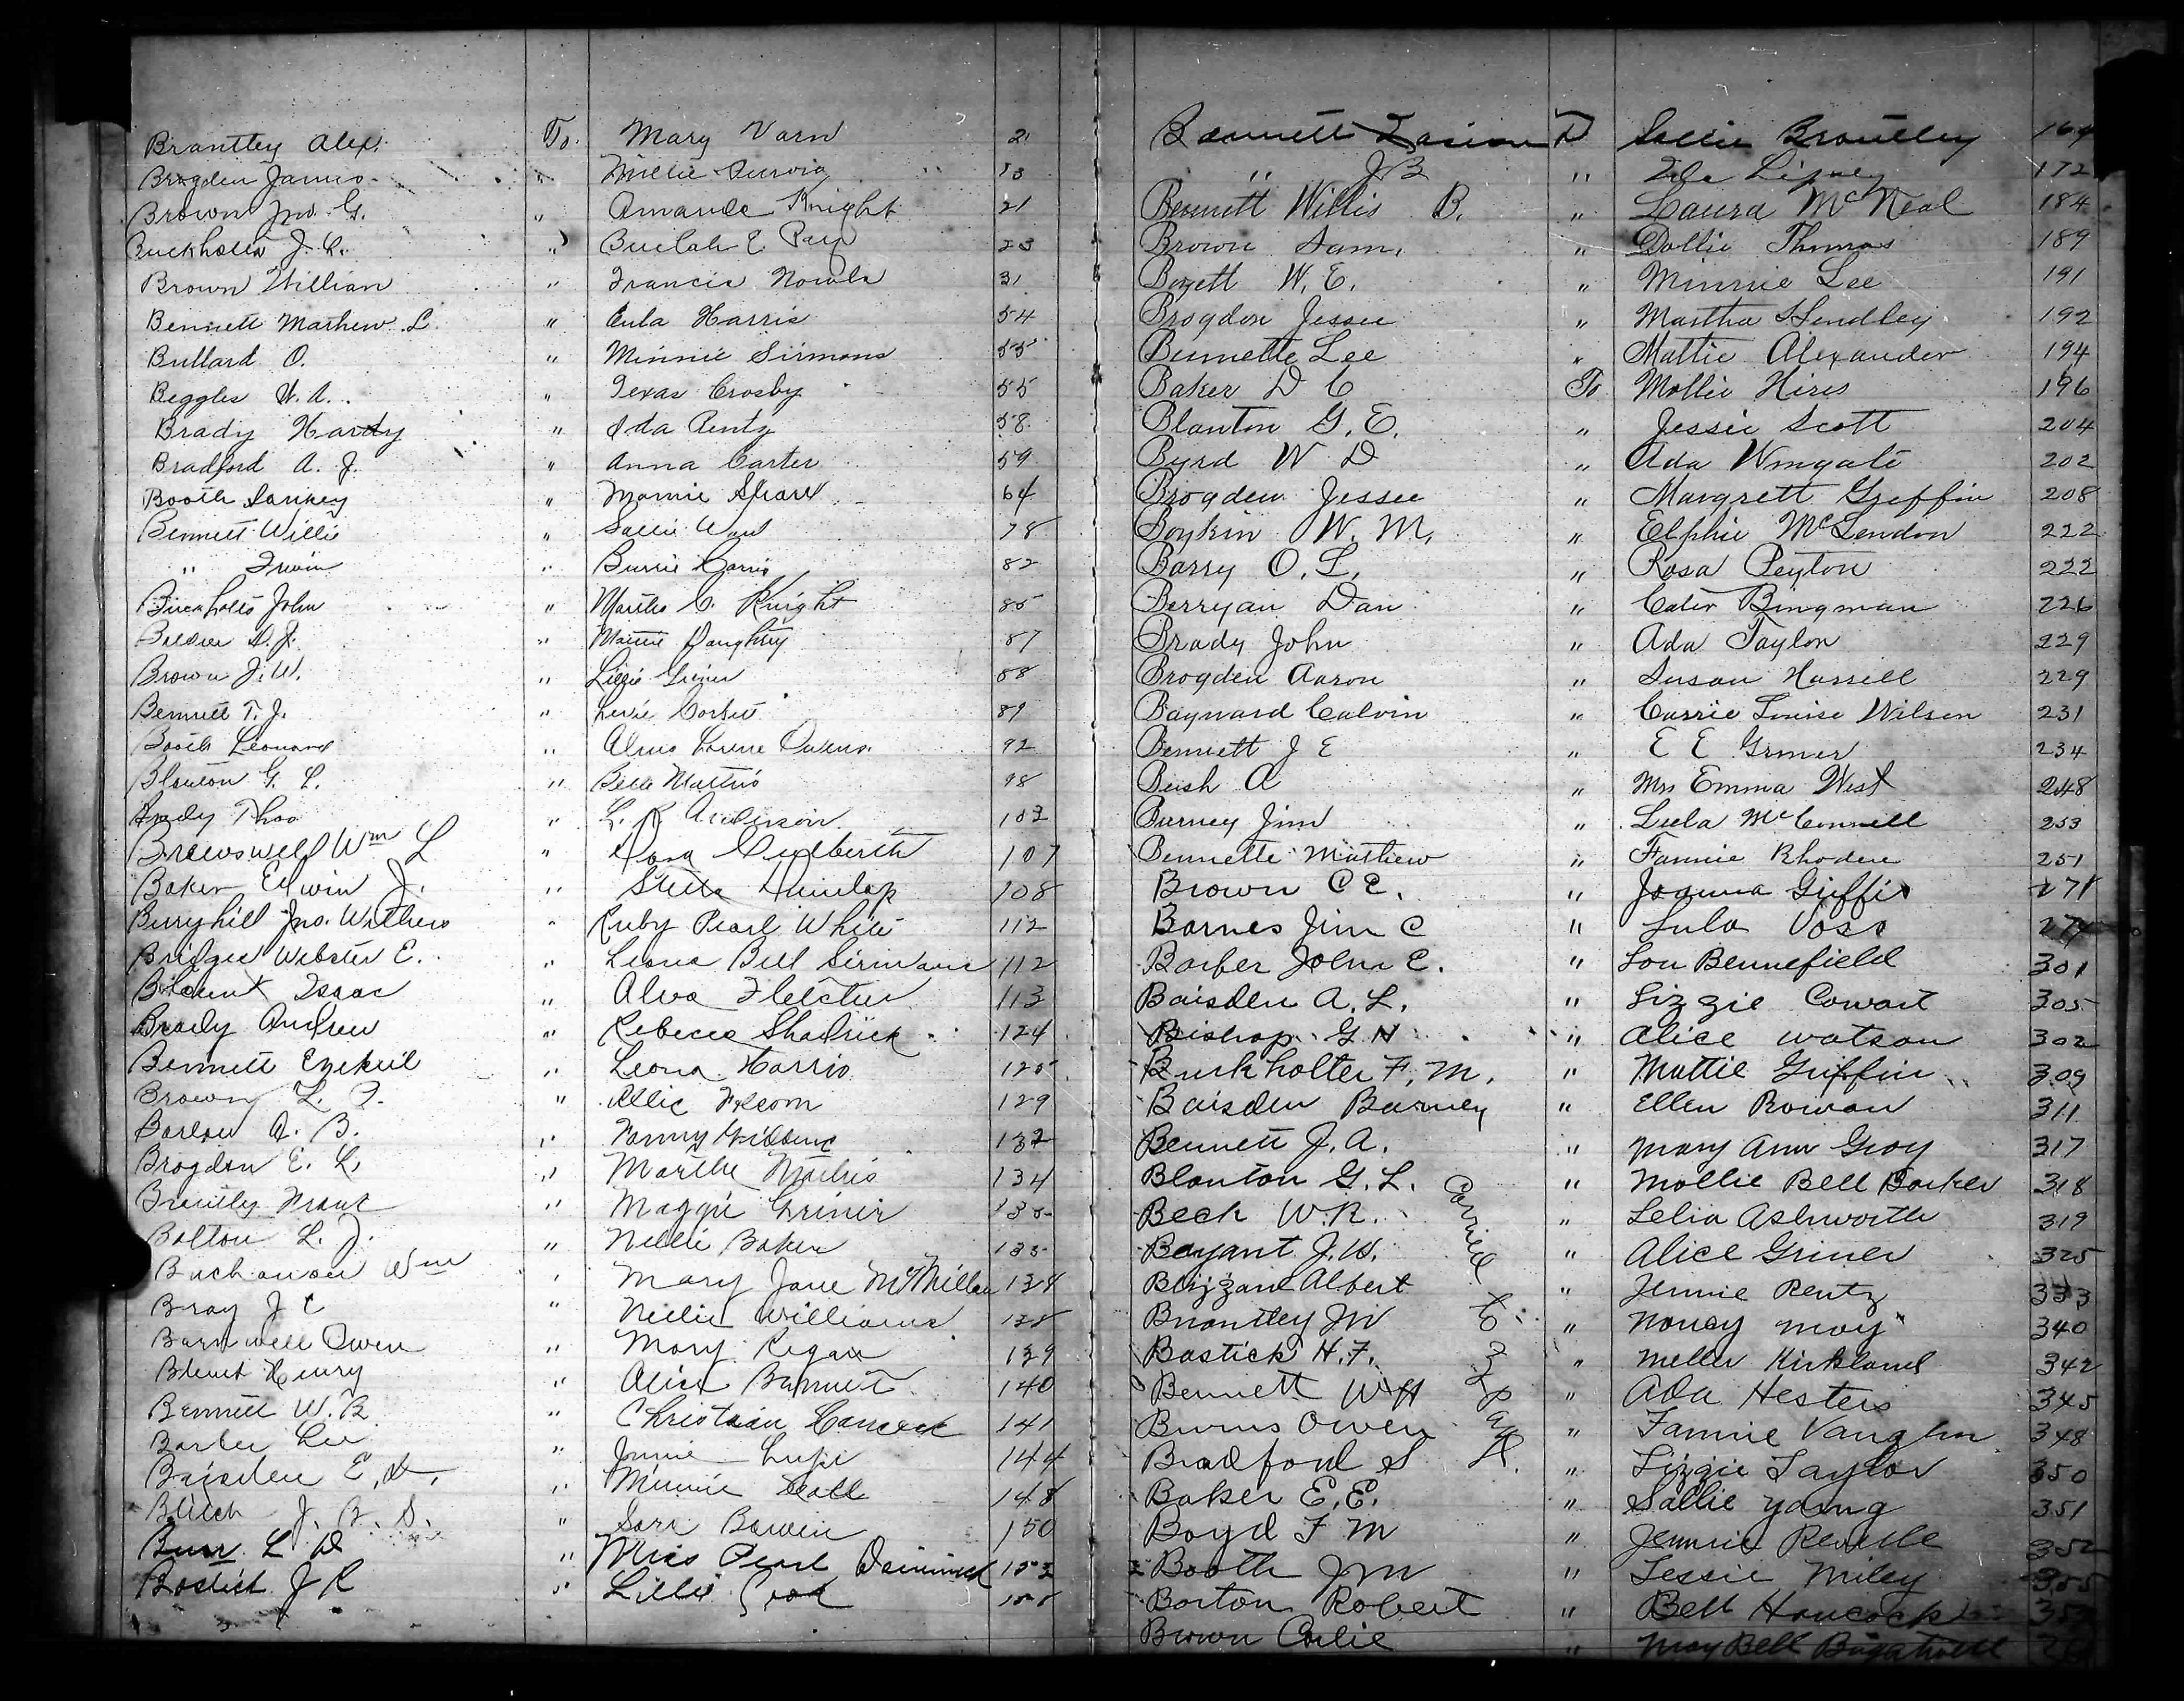 Brantley Alex. To. Mary Varn 21
Brogden James " Millie Purvis 13
Brown Jno. G. " Amanda Knight 21
Buckholts J. C. " Beulah E. Ray 23
Brown William " Francis Nowls 31
Bennett Mathew L. " Eula Harris 54
Bullard O. " Minnie Sirmons 55
Beggles W. A. " Texas Crosby 55
Brady Hardy " Ida Rentz 58
Bradford A. J. " Anna Carter 59
Booth Sankey " Mamie 64
Bennett Willie " Sallie 78
" Irwin " 82
Buckholts John " Martha C. Knight 85
D. J. " Mamie Daughtry 87
Brown J. W. " Lizzie Griner 88
Bennett T. J. " Corbett 89
Booth Leonard " Owens 92
Blanton G. L. " Belle Mathis 98
Brady Thos " L. R. Anderson 103
Wm L " Culberth 107
Baker Edwin J. " Stella Dunlap 108
Berryhill Jno. " Ruby Pearl White 112
Bridges Webster E. " Leona Bell Sirmans 112
Blount Isaac " Alva Fletcher 113
Brady Andrew " Rebecca Shadrick 124
Bennett Ezekiel " Leona Harris 125
Brown L. " Allie Folsom 129
Barlow A. B. " Fanny Giddens 132
Brogdon E. L. " Martha Mathis 134
Brantley Frank " Maggie Griner 135
Bolton L. J. " Nellie Baker 135
Buchanan Wm " Mary Jane McMillan 138
Bray J C " Nellie Williams 138
Barnwell Owen " Mary Regan 139
Blount Henry " Alice 140
Bennett W. R. " Christian 141
Barber Lee " 144
Baisden E. D. " Minnie 148
Blitch J. B. S. " 150
L D " Miss Pearl 152
Bostick J R " Lillie 158
Bennett To Sallie Brantley 164
" J B " 172
Bennett Willis B. " Laura McNeal 184
Brown Sam. " Dollie Thomas 189
Boyett W. E. " Minnie Lee 191
Brogdon Jessee " Martha Hendley 192
Bennette Lee " Mattie Alexander 194
Baker D C To Mollie Hires 196
Blanton G. E. " Jessie Scott 204
Byrd W D " Ada Wingate 202
Brogden Jessee " Margrett Griffin 208
Boykin W. M. " Elphie McLendon 222
Barry O. L. " Rosa Peyton 222
Berryan Dan " Bingman 226
Brady John " Ada Taylor 229
Brogden Aaron " Susan Harrell 229
Baynard Calvin " Carrie Louise Wilson 231
Bennett J E " E E Griner 234
Bush A " Mrs Emma West 248
Burney Jim " Lula McConnell 253
Bennette Mathew " Fannie Rhoden 251
Brown C E. " Joanna Griffis 271
Barnes Jim C " Lula Voss 274
Barber John E. " Lou Bennefield 301
Baisden A. L. " Lizzie Cowart 305
Bishop G H " Alice Watson 302
Burkholter F. M. " Mattie Griffin 309
Baisden Barney " Ellen Rowan 311
Bennett J. A. " Mary Ann Gray 317
Blanton G. L. " Mollie Bell Barker 318
Beck W. R. " Lelia Ashworth 319
Bryant J. W. " Alice Griner 325
Blizzard Albert " Jennie Rentz 333
Brantley Jno " Nancy May 340
Bostick H. F. " Kirkland 342
Bennett W H " Ada Hesters 345
Burns Owen " Fannie Vaughn 348
Bradford S " Lizzie Taylor 350
Baker E. E. " Sallie Young 351
Boyd F M " Jennie Revelle 352
Booth J M " Lessie Miley 355
Borton Robert " Bell Hancock
Brown " May Bell
Carried to